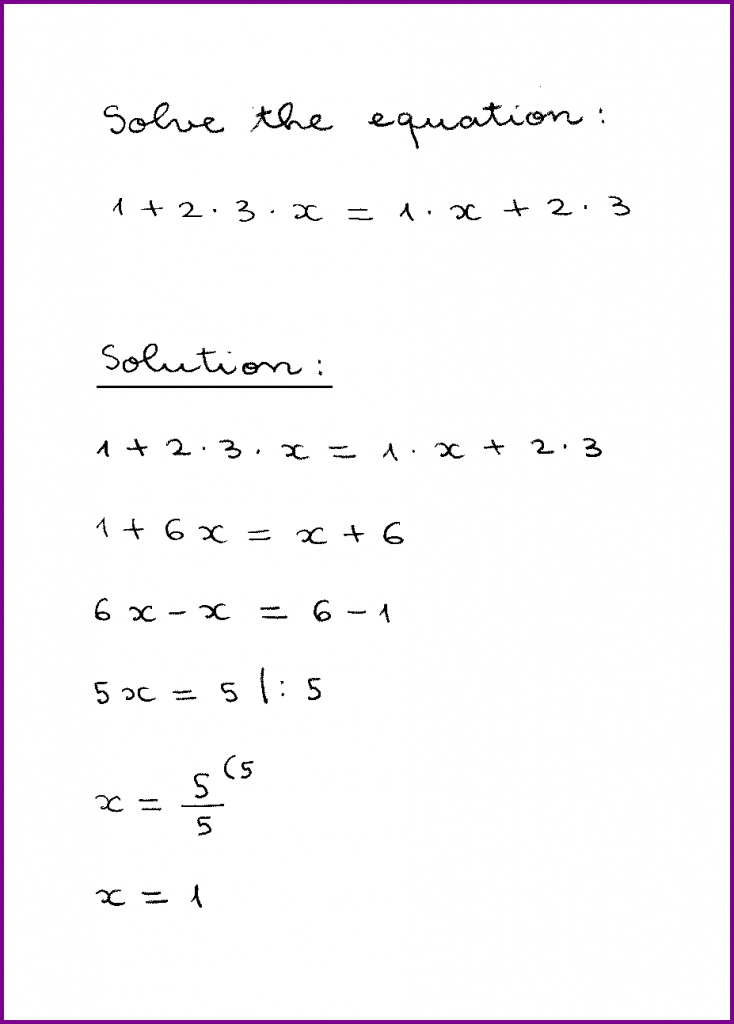 Solve the equation:
1 + 2 · 3 · x = 1 · x + 2 · 3
Solution:
1 + 2 · 3 · x = 1 · x + 2 · 3
1 + 6x = x + 6
6x - x = 6 - 1
5x = 5 |: 5
x = 5/5 (5
x = 1